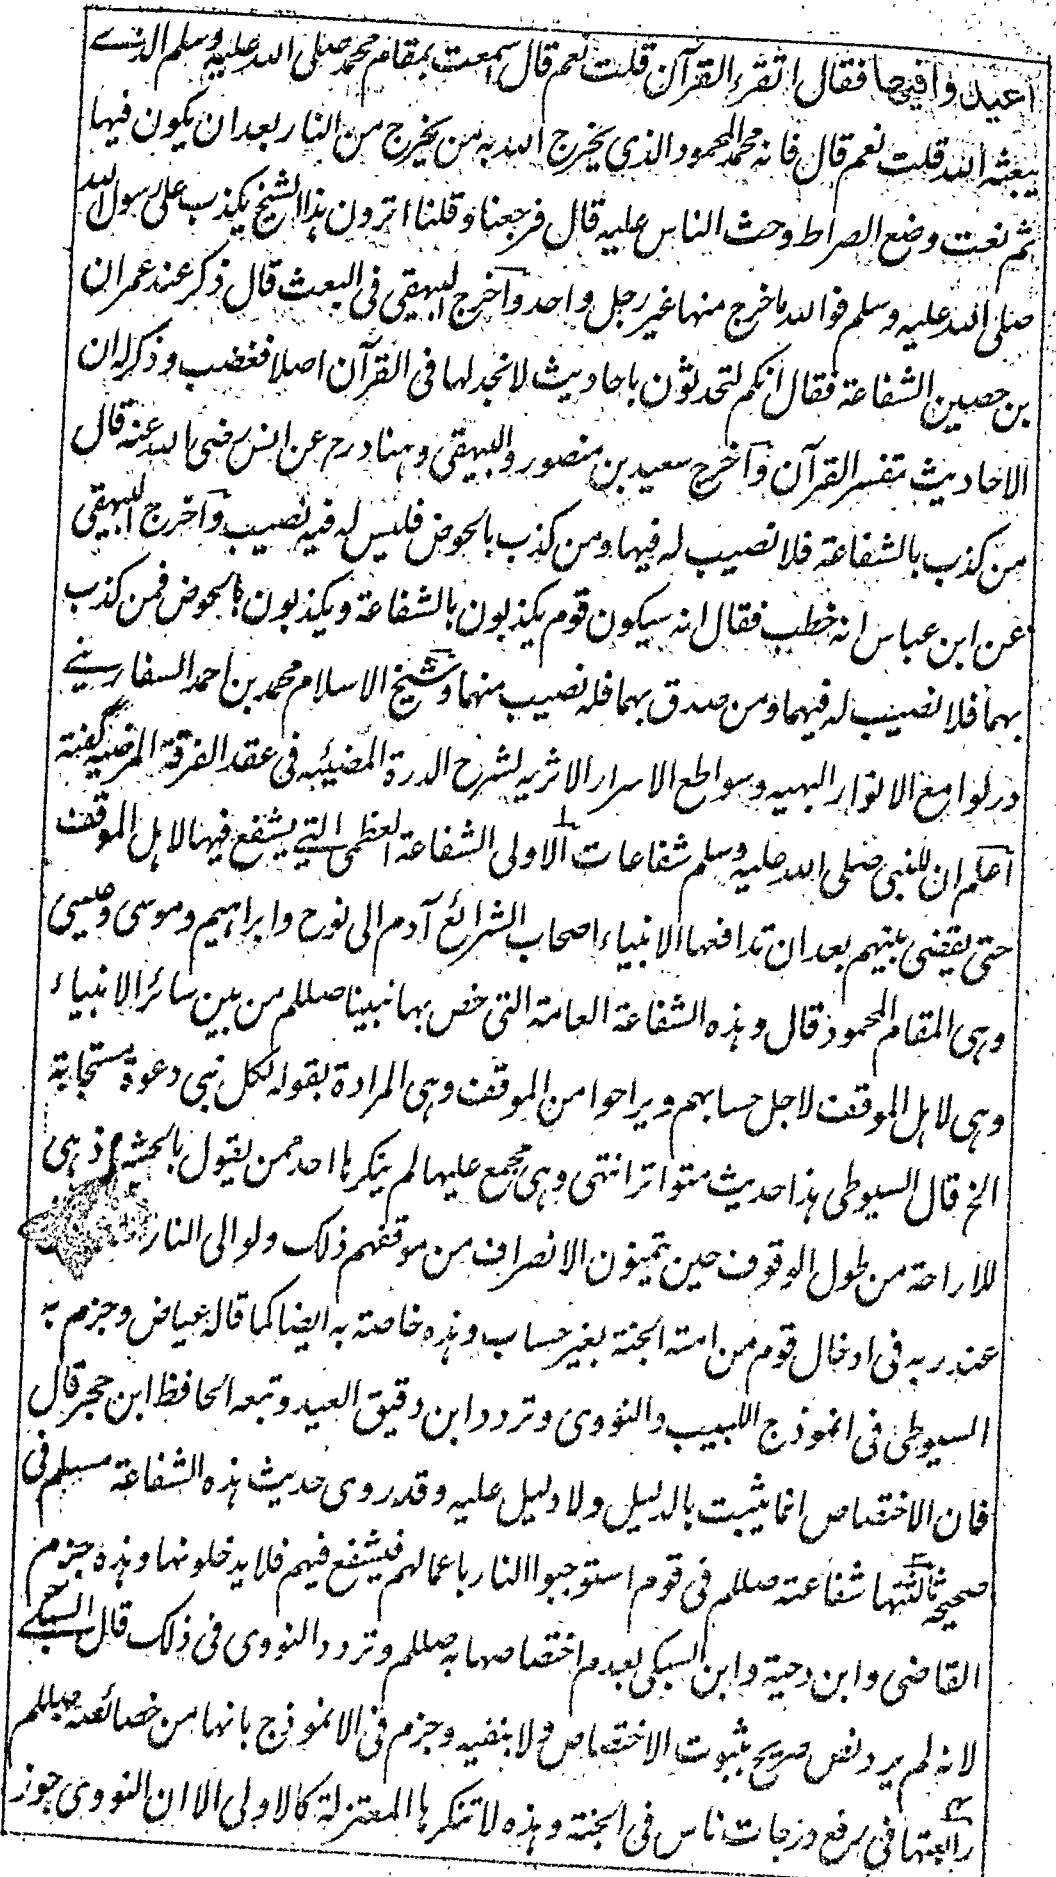 اعيد وا فيها فقال اتقرء القرآن قلت نعم قال سمعت بمقام محمد صلى الله عليه وسلم الذے
يبعثه الله قلت نعم قال فانه محمد المحمود الذي يخرج الله به من يخرج من النار بعد ان يكون فيها
ثم نعت وضع الصراط وحث الناس عليه قال فرجعنا وقلنا اترون هذا الشيخ يكذب على رسول الله
صلى الله عليه وسلم فوالله ما خرج منها غير رجل واحد وآخرج البيهقي في البعث قال ذكر عند عمران
بن حصين الشفاعة فقال انكم لتحدثون باحاديث لا نجد لها في القرآن اصلا فغضب وذكر له ان
الاحاديث تفسر القرآن وآخرج سعيد بن منصور والبيهقي وهنادرم عن انس رضى الله عنه قال
من كذب بالشفاعة فلا نصيب له فيها ومن كذب بالحوض فليس له فيه نصيب وآخرج البيهقي
عن ابن عباس انه خطب فقال انه سيكون قوم يكذبون بالشفاعة ويكذبون بالحوض فمن كذب
بهما فلا نصيب له فيهما ومن صدق بهما فله نصيب منهما وشيخ الاسلام محمد بن احمد السفارينے
در لوامع الانوار البهيه وسواطع الاسرار الاثريه لشرح الدرة المضيئيه في عقد الفرقة المرضيه گفته
آعلم ان للنبي صلى الله عليه وسلم شفاعات الاولى الشفاعة العظمى التے يشفع فيها لاهل الموقف
حتى يقضى بينهم بعد ان تدافعها الانبياء اصحاب الشرائع آدم الى نوح وابراهيم وموسى وعيسى
وهى المقام المحمود قال وهذه الشفاعة العامة التى خص بها نبينا صللم من بين سائر الانبياء
وهى لاهل الموقف لاجل حسابهم ويراحوا من الموقف وهى المرادة بقوله لكل نبي دعوة مستجابة
الخ قال السيوطى هذا حديث متواتر انتهى وهى مجمع عليها لم ينكرها احد ممن يقول بالحشر اذ هى
للاراحة من طول الوقوف حين يتمنون الانصراف من موقفهم ذلك ولو الى النار
عند ربه فى ادخال قوم من امته الجنة بغير حساب وهذه خاصة به ايضا كما قاله عياض وجزم به
السيوطى فى انموذج اللبيب والنووى وتردد ابن دقيق العيد وتبعه الحافظ ابن حجر قال
فان الاختصاص انما يثبت بالدليل ولا دليل عليه وقد روى حديث هذه الشفاعة مسلم فى
صحيحه ثالثتها شفاعته صللم فى قوم استوجبوا النار باعمالهم فيشفع فيهم فلا يدخلونها وهذه جزم
القاضى وابن دحية وابن السبكى بعدم اختصاصها به صللم وتردد النووى فى ذلك قال السبكے
لانه لم يرد نص صريح بثبوت الاختصاص ولا بنفيه وجزم فى الانموذج بانها من خصائصه صللم
رابعتها فى رفع درجات ناس فى الجنة وهذه لا تنكرها المعتزلة كالاولى الا ان النووى جوز